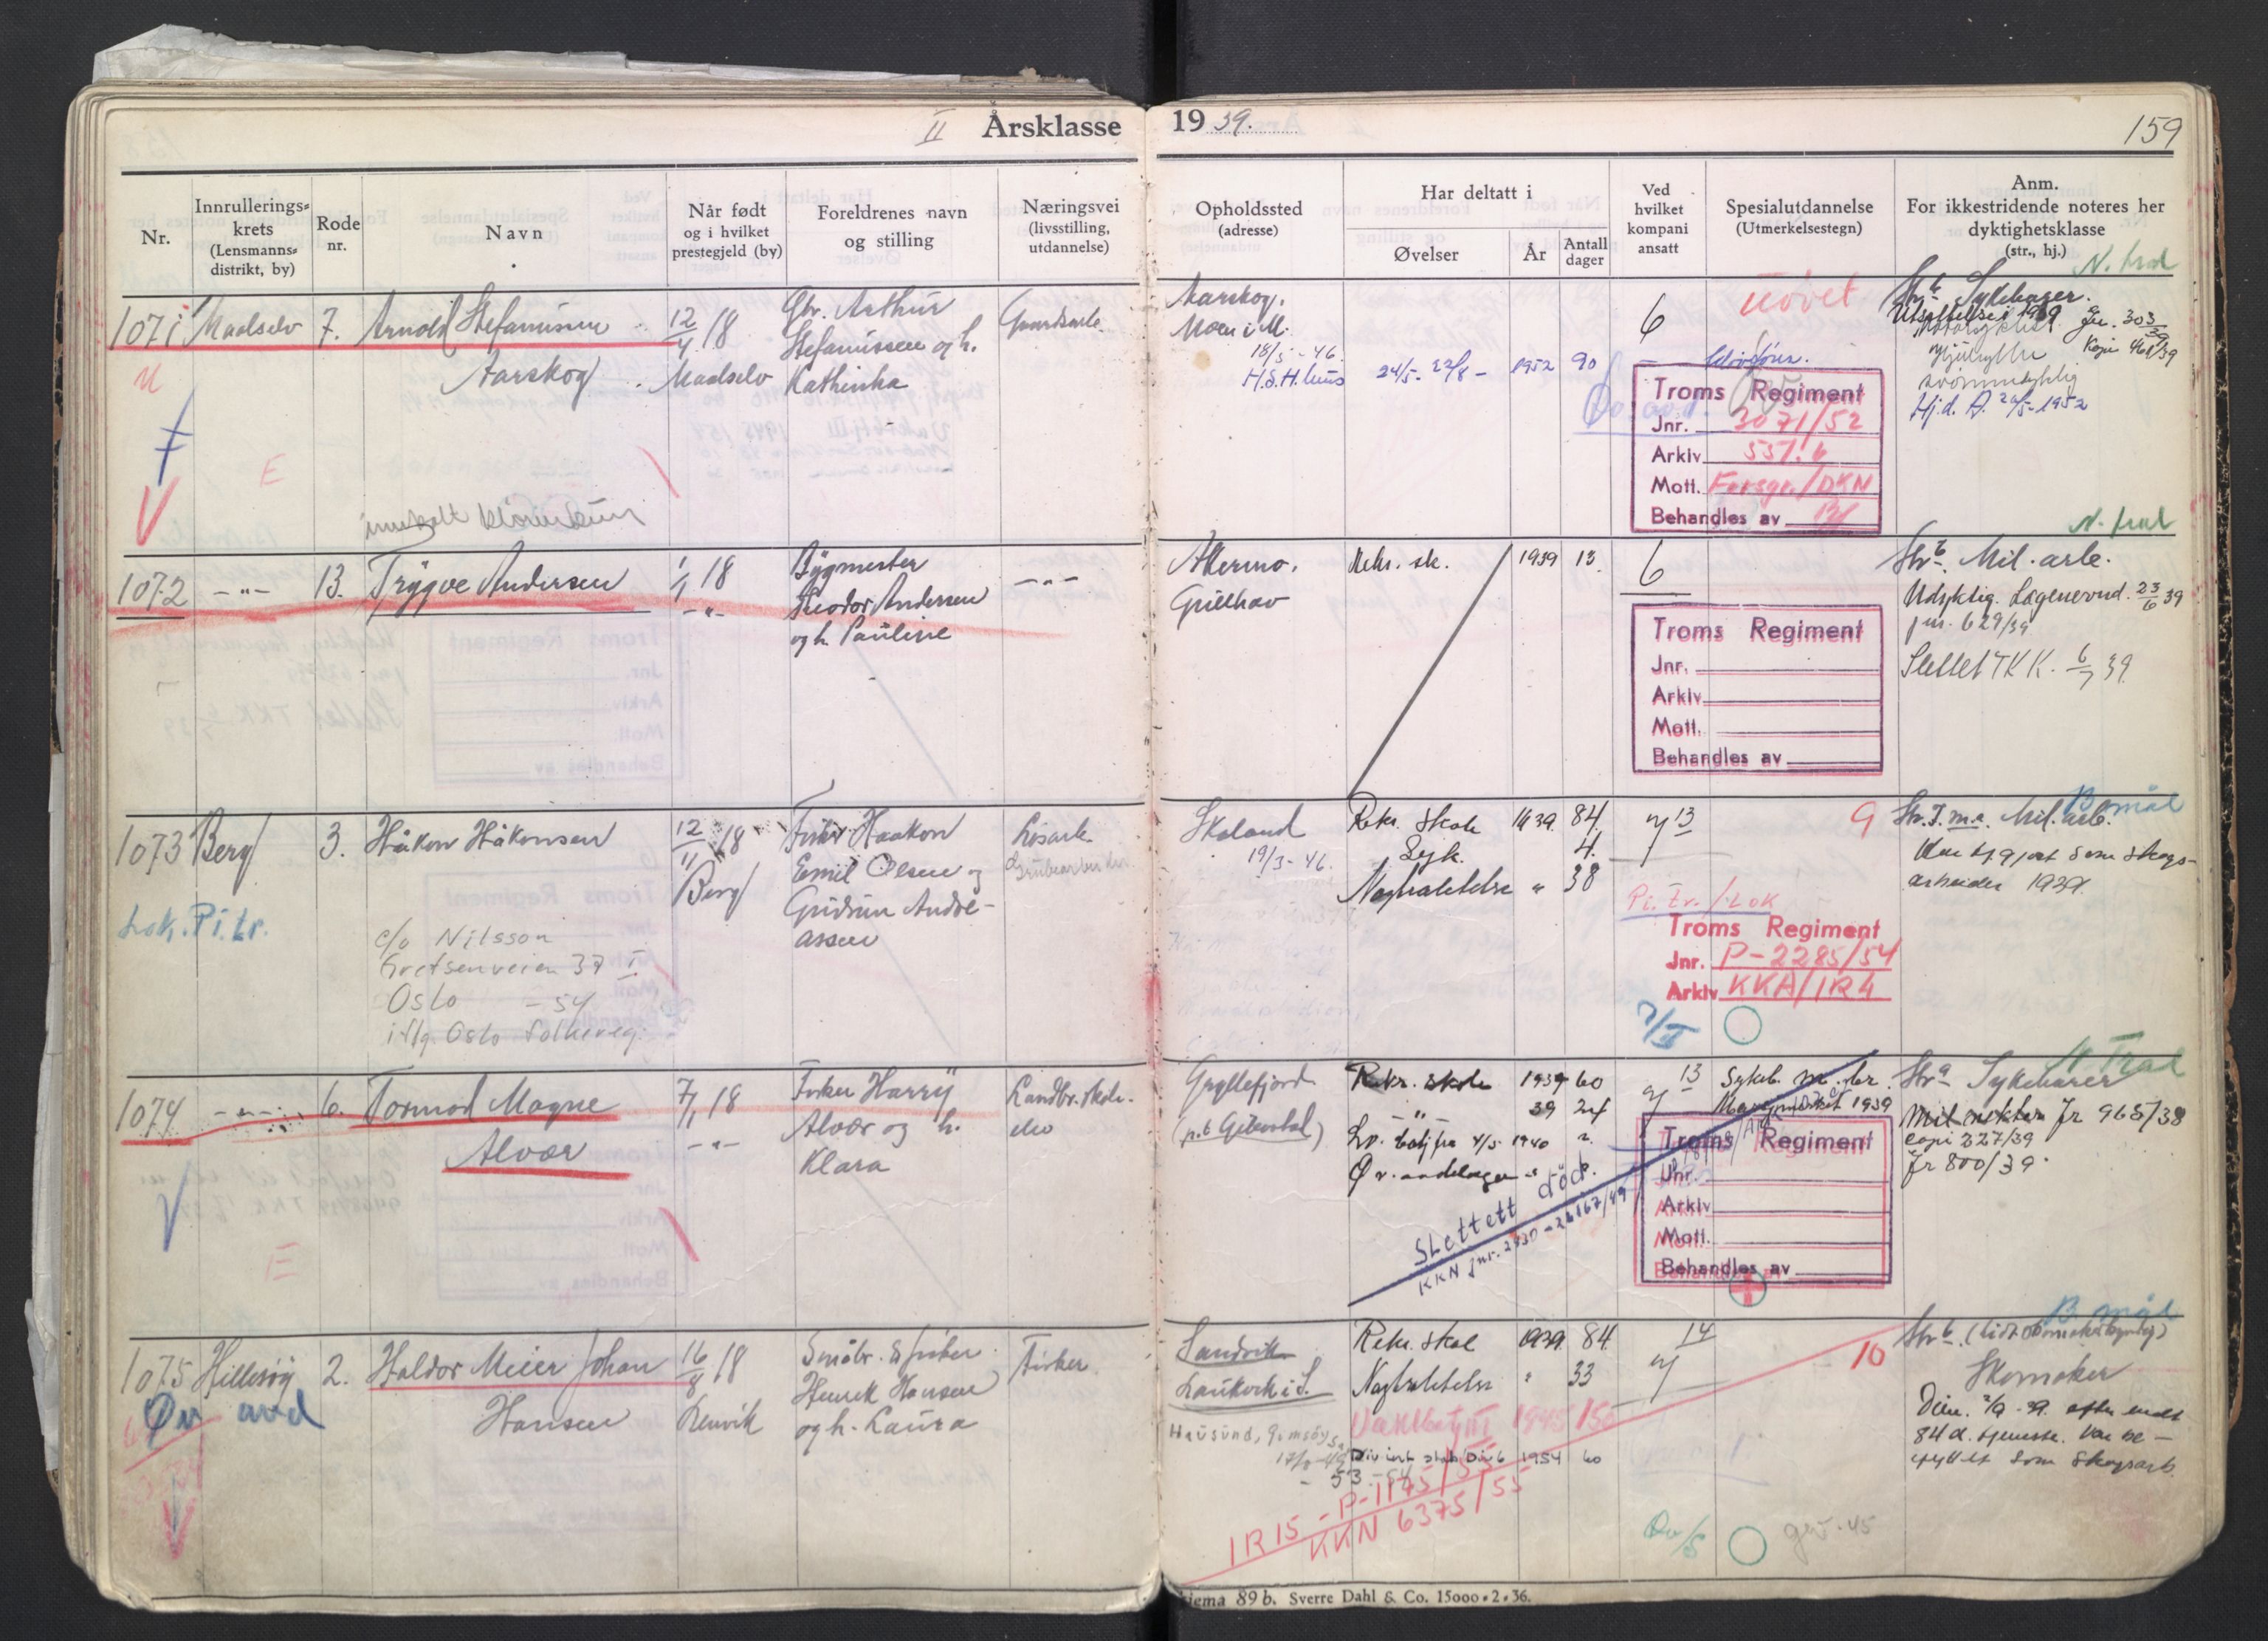 II Årsklasse 1939. 159
Nr.
Innrullerings-
krets
(Lensmanns-
distrikt, by)
Rode
nr.
Navn
Når født
og i hvilket
prestegjeld (by)
Foreldrenes navn
og stilling
Næringsvei
(livsstilling,
utdannelse)
Opholdssted
(adresse)
Har deltatt i
Øvelser
År
Antall
dager
Ved
hvilket
kompani
ansatt
Spesialutdannelse
(Utmerkelsestegn)
Anm.
For ikkestridende noteres her
dyktighetsklasse
(str., hj.)
1071 Maalselv 7. Arnold Stefanussen
Aarskog
12/4 18
Maalselv
Gbr. Arthur
Stefanussen og h.
Kathinka
Gaardsarb.
Aarskog.
Moen i M.
18/5 - 46.
24/5 - 22/8 - 1952 90
6
uøvet
Troms Regiment
Jnr. 3071/52
Arkiv 531.6
Mott. Forsgr./DKN
Behandles av
N. trad
Str. b Sykebærer.
Utsettelse 1939
Jnr. 303/39
Kopi 461/39
svømmedyktig
Hj.d. A. 20/5 - 1952
E
1072 -"- 13. Trygve Andersen
1/1 18
-"-
Bygmester
Theodor Andersen
og h. Pauline
-"-
Akermo.
Gullhav
Rekr. sk. 1939 13.
6
Troms Regiment
Jnr.
Arkiv
Mott.
Behandles av
N. trad
Str. b. Mil. arb.
Udyktig. Lægenevnd. 23/6 39
jnr. 629/39
Slettet TKK. 6/7 39
1073 Berg 3. Håkon Håkonsen
12/11 18
Berg
Fisker Haakon
Emil Olsen og
Gudrun Andre-
assen
Løsarb.
Grubearbeider
Lok. Pi. tr.
c/o Nilsson
Gretsenveien 37 I
Oslo - 54
iflg. Oslo folkereg.
Skaland
19/3 - 46.
Rekr. skole 1939 84
Syk. 4.
Nøytralitetsv " 38
13
9
Pi. tr. / Lok
Troms Regiment
Jnr. P-2285/54
Arkiv KKA/IR4
B mål
Str. I. m.a. Mil. arb.
Har tj.gjort som skogs-
arbeider 1939.
1074 -"- 6. Tormod Magne
Alvær
7/1 18
-"-
Fisker Harry
Alvær og h.
Klara
Landbr. skole.
elev
E
Gryllefjord
(p.t. Gibostad)
Rekr. skole 1939 60
-"- 39 24
Lv. batj fra 4/5 1940
Slettett død.
KKN jnr. 2930 - 26167/49
13
Sykeb. m. br.
Mareamerket 1939
Troms Regiment
Jnr.
Arkiv
Mott.
Behandles av
N Trad
Str. a Sykebærer
Mil nekter Jr 965/38
copi 227/39
Jr 800/39.
1075 Hillesøy 2. Haldor Meier Johan
Hansen
16/8 18
Lenvik
Småbr. & fisker
Henrik Hansen
og h. Laura
Fisker
Øv avd
Sandvik
Laukvik i S.
Rekr. skol 1939 84
Nøytralitetsv " 33
Vaktbatj III 1945 150
1954 60
IR 15 - P-1175/55
KKN 6375/55
14
10
gev. 45
B mål
Str. b.
Skomaker
84 d. tjeneste. Har be-
nyttet som skogsarb.
Skjema 89 b. Sverre Dahl & Co. 15000.2.36.